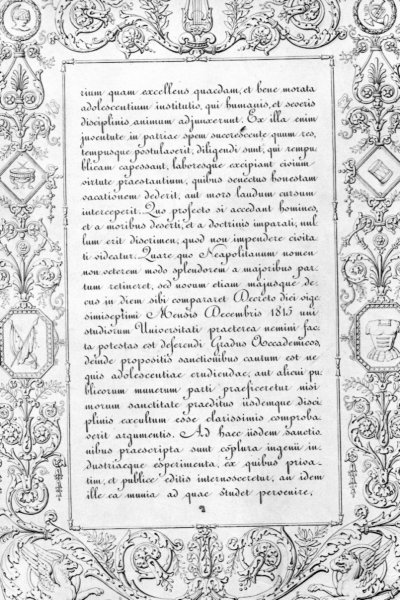 rium quam excellens quaedam, et bene morata
adolescentium institutio, qui humanis, et severis
disciplinis animum adjunxerunt. Ex illa enim
juventute in patriae spem sucrescente quum res,
tempusque postulaverit, diligendi sunt, qui rempu
blicam capessant, laboresque excipiant civium
virtute praestantium, quibus senectus honestam
vacationem dederit, aut mors laudum cursum
interceperit. Quo profecto si accedant homines,
et a moribus deserti, et a doctrinis imparati, nul
lum erit discrimen, quod non impendere civita
ti videatur. Quare quo Neapolitanum nomen
non veterem modo splendorem a majoribus par
tum retineret, sed novum etiam majusque de
cus in diem sibi compararet Decreto diei vige
simiseptimi Mensis Decembris 1815 uni
studiorum Universitati praeterea nemini fac
ta potestas est deferendi Gradus Accademicos,
deinde propositis sanctionibus cautum est ne
quis adolescentiae erudiendae, aut alicui pu
blicorum munerum parti praeficeretur nisi
morum sanctitate praeditus iisdemque disci
plinis excultum esse clarissimis comproba
verit argumentis. Ad haec iisdem sanctio
nibus praescripta sunt complura ingenii in
dustriaeque experimenta, ex quibus priva
tim, et publice editis internosceretur, an idem
ille ea munia ad quae studet pervenire,
2